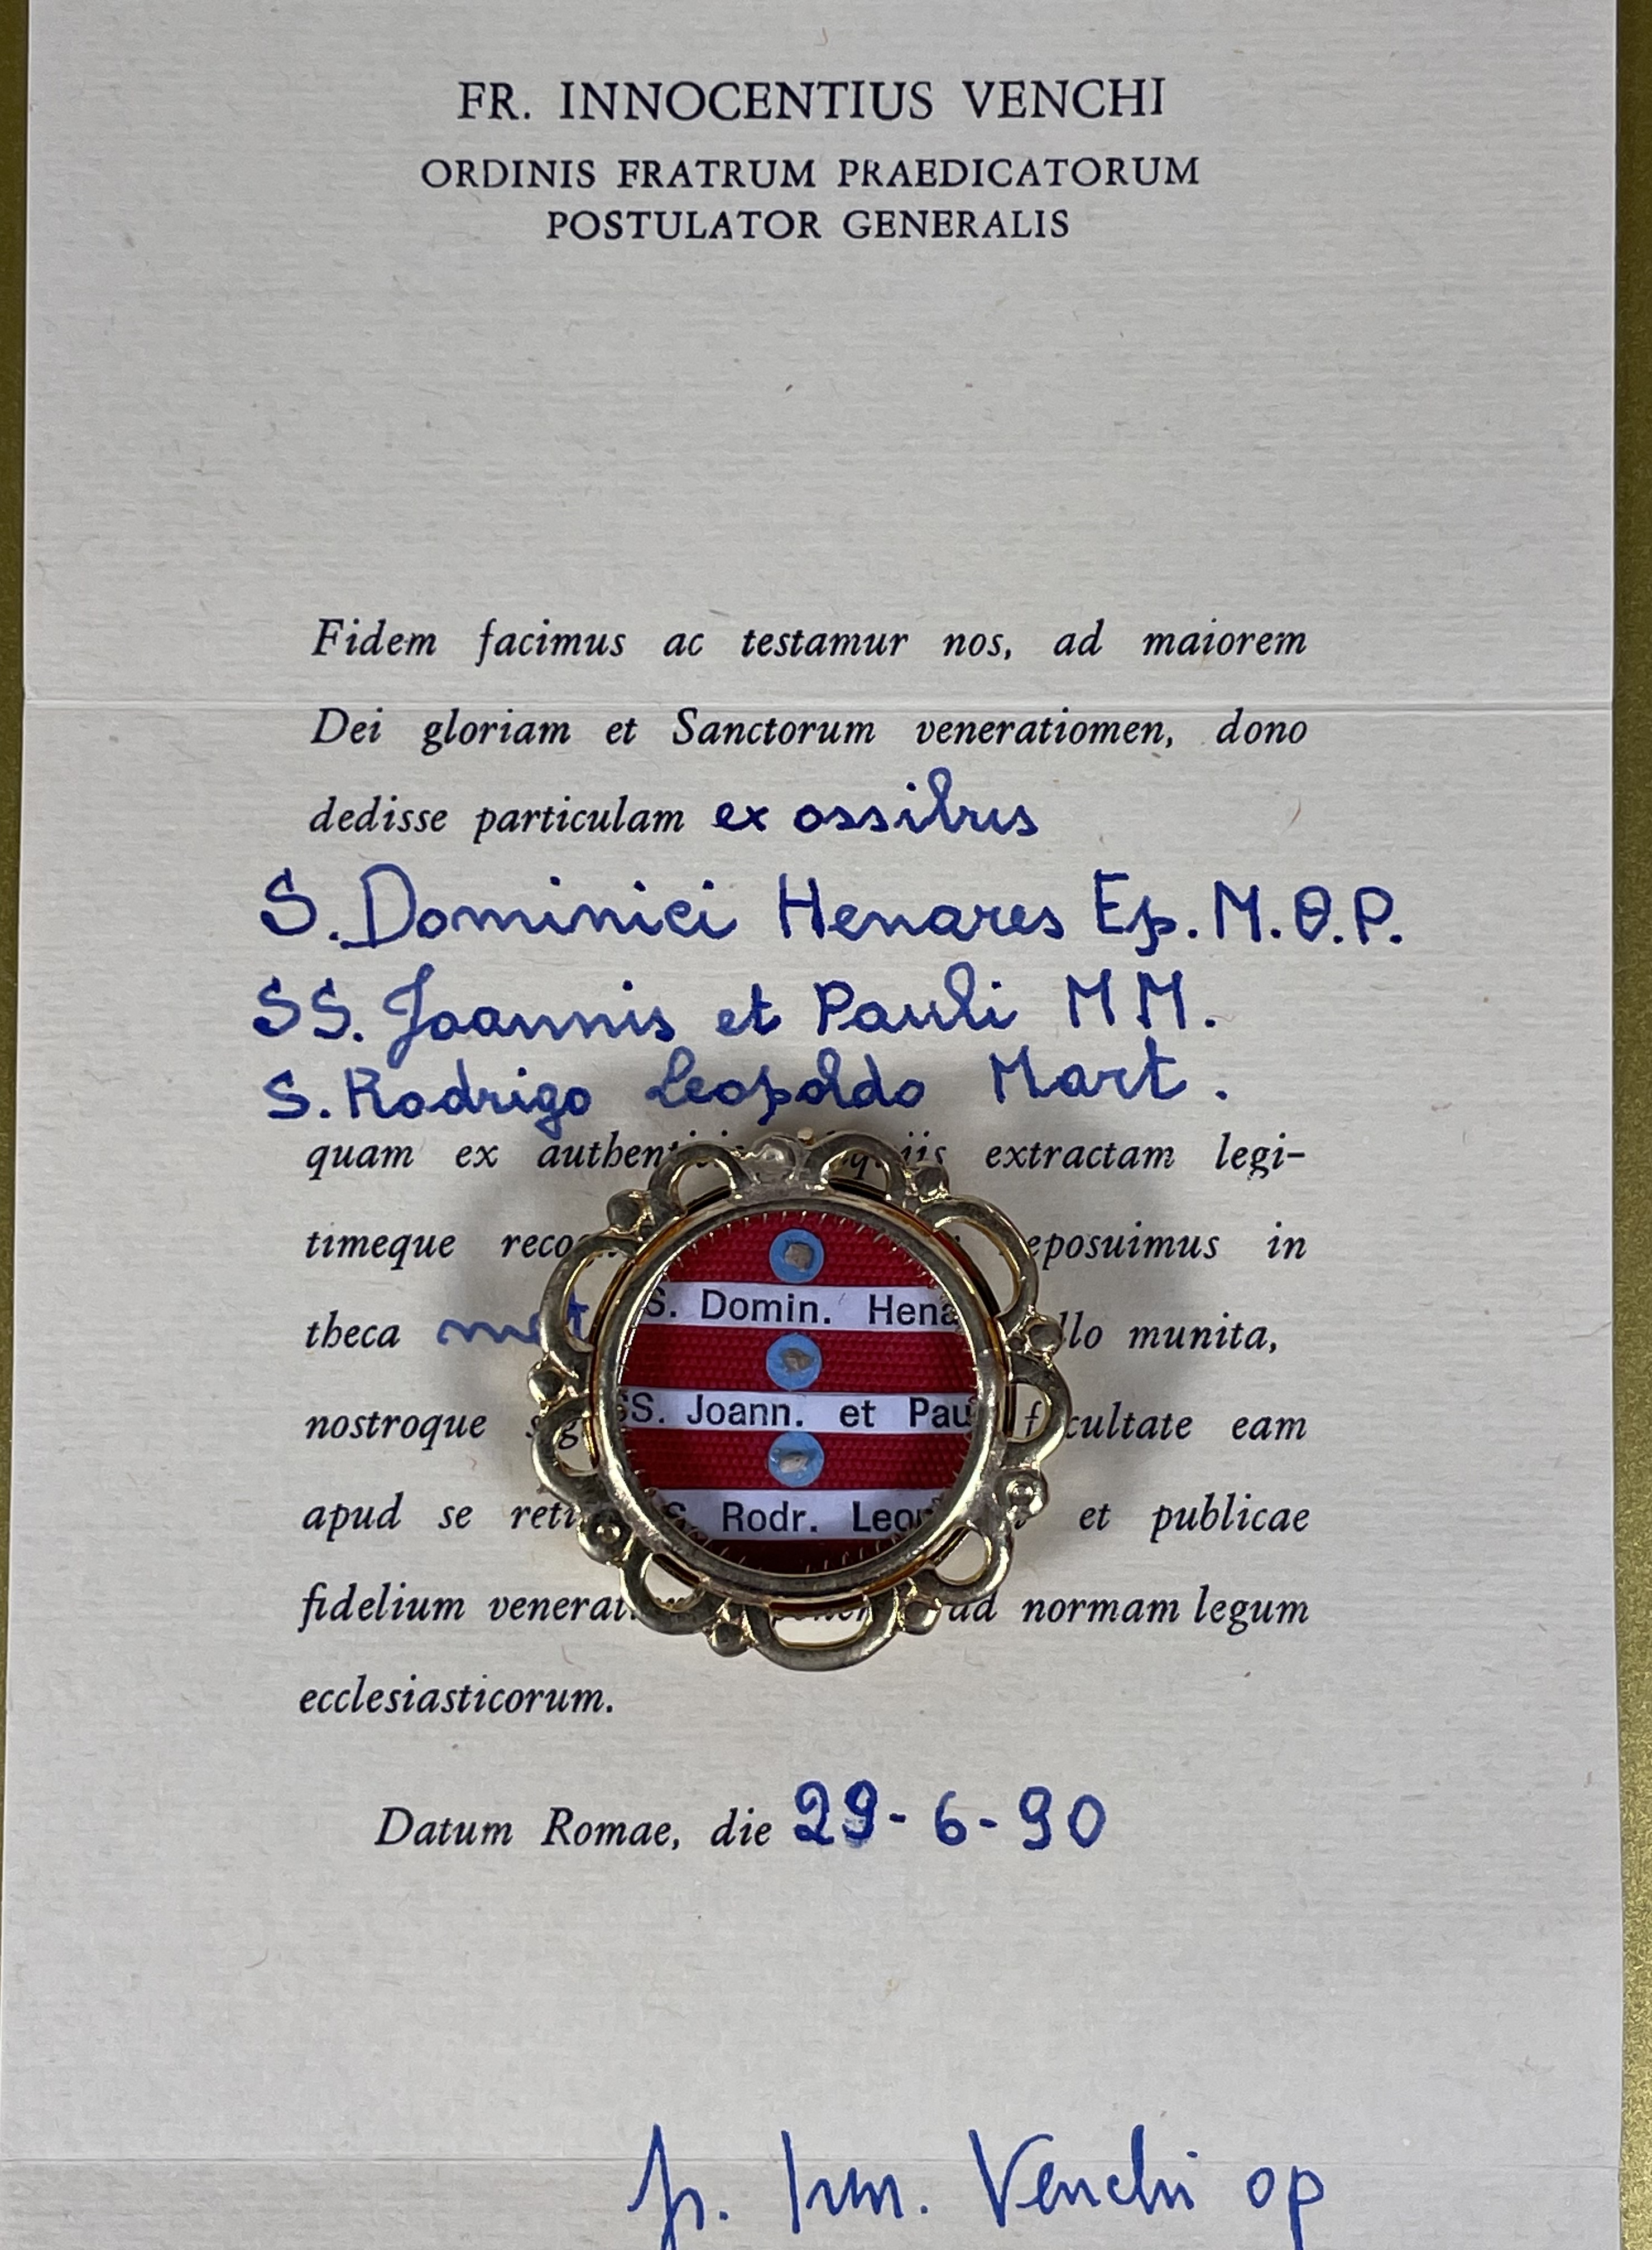 FR. INNOCENTIUS VENCHI
ORDINIS FRATRUM PRAEDICATORUM
POSTULATOR GENERALIS
Fidem facimus ac testamur nos, ad maiorem
Dei gloriam et Sanctorum veneratiomen, dono
dedisse particulam ex ossibus
S. Dominici Henares Ep. M. O.P.
SS. Joannis et Pauli MM.
S. Rodrigo Leopoldo Mart.
quam ex extractam legi-
timeque in
theca munita,
nostroque eam
apud se et publicae
fidelium ad normam legum
ecclesiasticorum.
S. Domin. Hena
SS. Joann. et Pau
S. Rodr. Leop
Datum Romae, die 29-6-90
fr. Inn. Venchi op